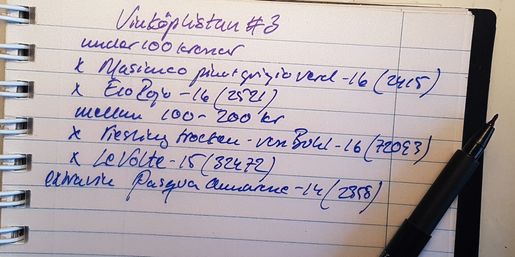 Vinköplistan #3
under 100 kronor
x Masianco pinot grigio verd - 16 (2415)
x Ero Rojo - 16 (2521)
mellan 100 - 200 kr
x Riesling trocken - von Buhl - 16 (72093)
x Le Volte - 15 (32472)
extravin Pasqua - 14 (2358)